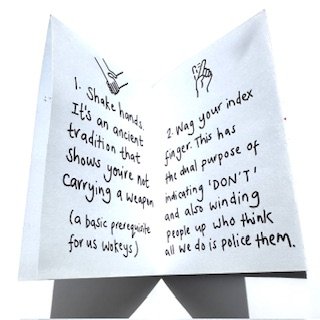 1. Shake hands.
It's an ancient
tradition that
shows you're not
carrying a weapon
(a basic prerequisite
for us wokeys)
2. Wag your index
finger. This has
the dual purpose of
indicating 'DON'T'
and also winding
people up who think
all we do is police them.